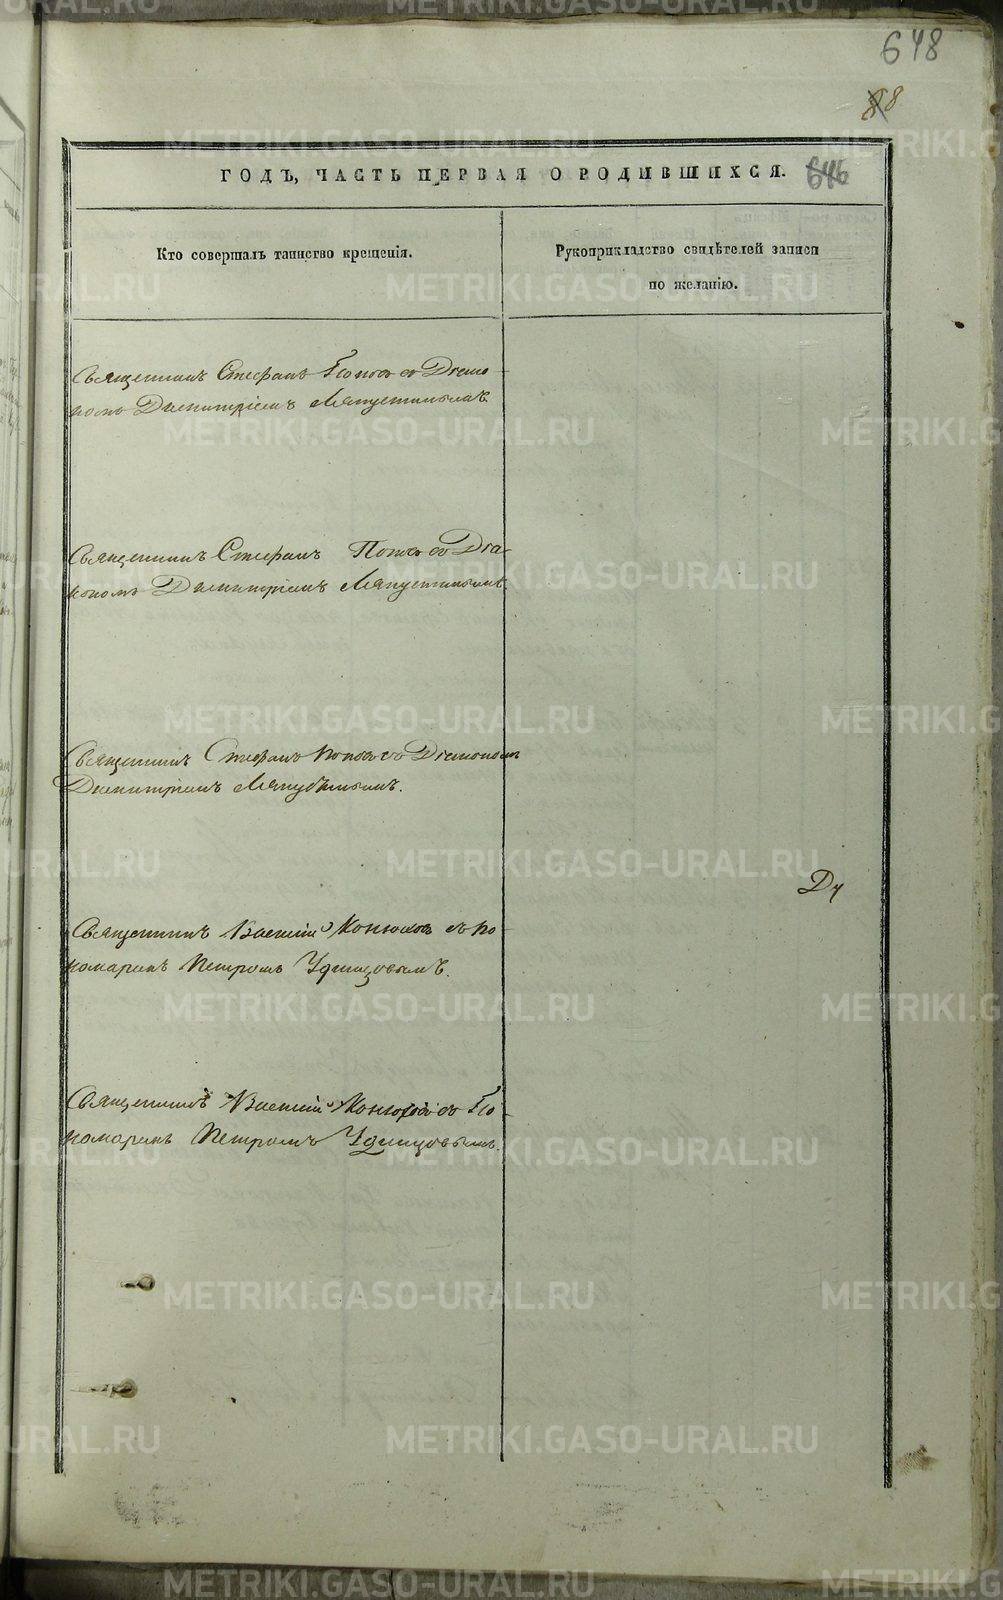 648
88
ГОДЪ, ЧАСТЬ ПЕРВАЯ О РОДИВШИХСЯ. 646
Кто совершалъ таинство крещенія.
Рукоприкладство свидѣтелей записи
по желанію.
Священникъ Стефанъ Поповъ съ Діако-
номъ Димитріемъ Ляпустинымъ
Священникъ Стефанъ Поповъ съ Діа-
кономъ Димитріемъ Ляпустинымъ.
Священникъ Стефанъ Поповъ съ Діакономъ
Димитріемъ Ляпустинымъ.
Священникъ Василій Конюховъ съ По-
номаремъ Петромъ Удинцовымъ.
Священникъ Василій Конюховъ съ По-
номаремъ Петромъ Удинцовымъ.
METRIKI.GASO-URAL.RU